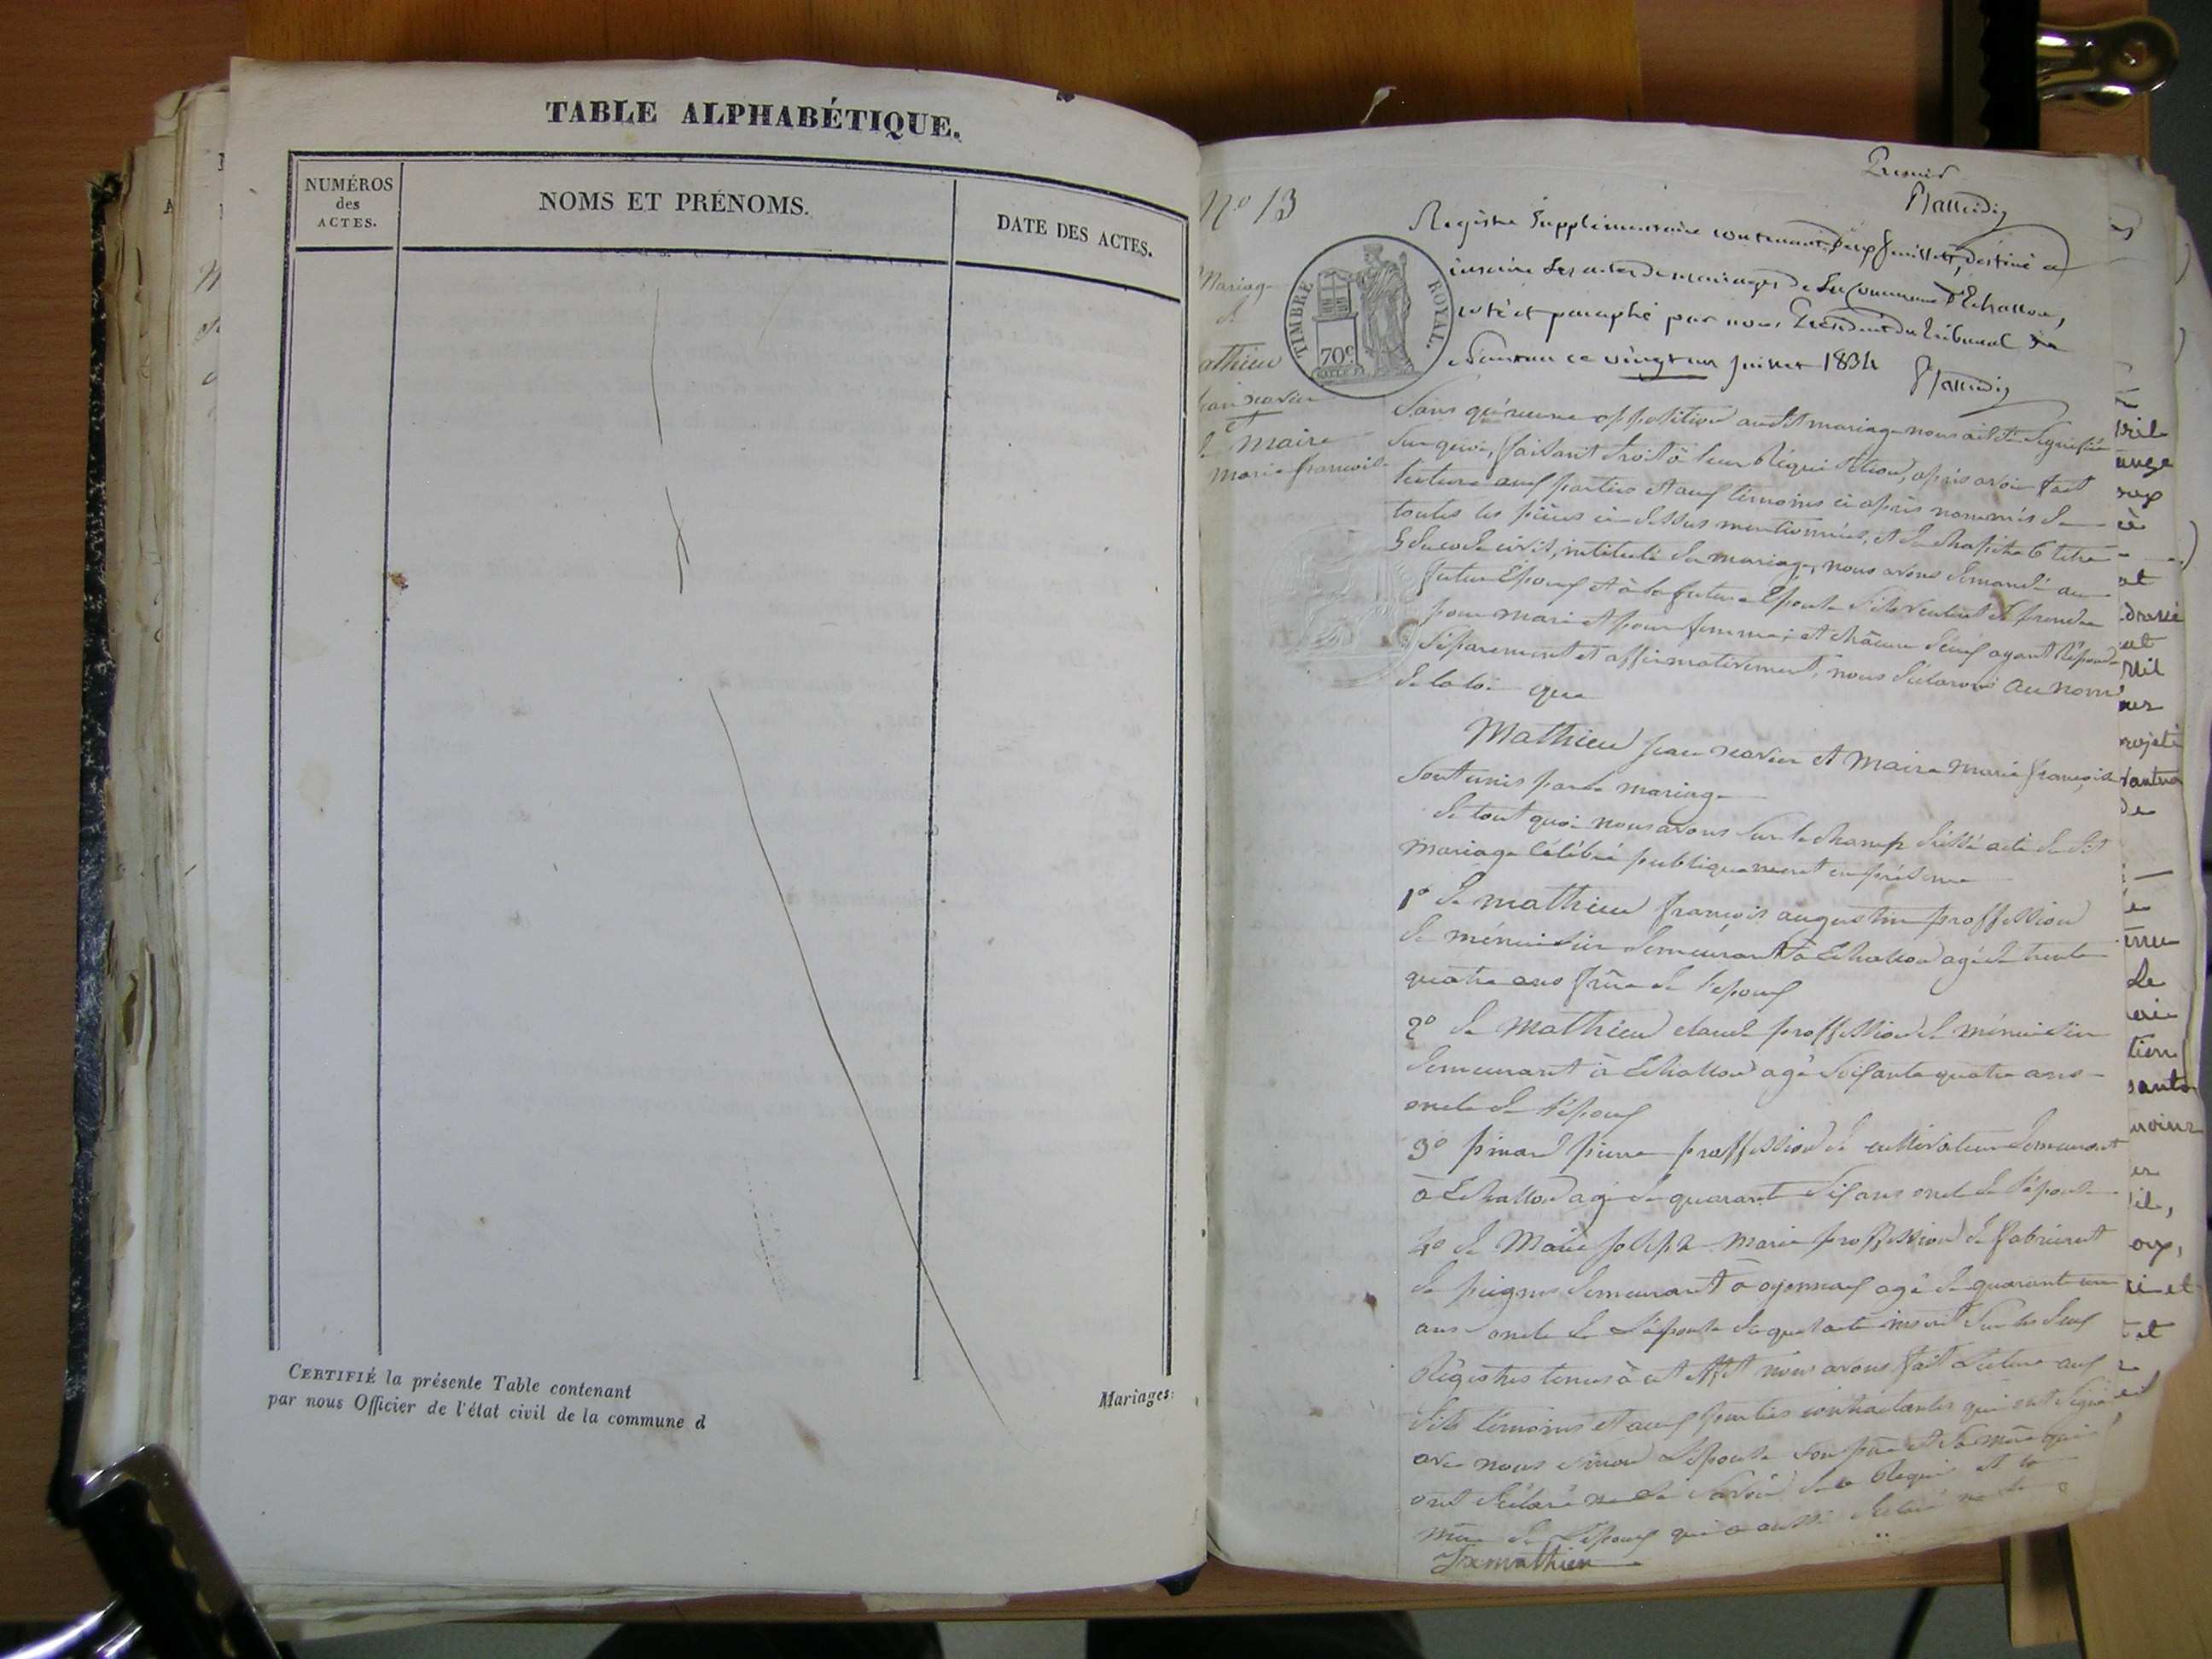 TABLE ALPHABÉTIQUE.
NUMÉROS
des
ACTES.
NOMS ET PRÉNOMS.
DATE DES ACTES.
CERTIFIÉ la présente Table contenant
par nous Officier de l'état civil de la commune d
Mariages:
N.o 13
Mariage
de
athieu
jean xavier
et
Maire
marie françoise
Premier
Registre Supplémentaire contenant deux feuillets, destiné à
inscrire les actes de mariages de la Commune d'Echallon,
coté et paraphé par nous Président du tribunal de
Nantua ce vingt un juillet 1834
TIMBRE ROYAL.
70c
Sans qu'aucune opposition audit mariage nous ait été Signifiée
Sur quoi, faisant droit à leur Réquisition, après avoir fait
lecture aux parties et aux témoins ci après nommés de
toutes les pièces ci dessus mentionnées, et du chapitre 6 titre
5 du code civil, intitulé du mariage, nous avons demandé au
futur Epoux et à la future Epouse s'ils veulent se prendre
pour mari et pour femme; et chacun d'eux ayant Répondu
Séparement et affirmativement, nous déclarons au nom
de la loi que
Mathieu jean xavier et Maire marie françoise
Sont unis par le mariage
de tout quoi nous avons Sur le champ dressé acte du dit
mariage Célébré publiquement en présence
1o de mathieu françois augustin proffession
de ménuisier demeurant à Echallon agé de trente
quatre ans frère de l'epoux
2o de Mathieu claude proffession de ménuisier
demeurant à Echallon agé Soixante quatre ans
oncle de l'époux
3o pinard pierre proffession de cultivateur demeurant
à Echallon agé de quarante Six ans oncle de l'épouse
4o de Maire joseph marie proffession de fabricant
de peignes demeurant à oyonnax agé de quarante un
ans oncle de L'épouse duquel acte inscrit Sur les deux
Régistres tenus à cet effet nous avons fait Lecture aux
dits témoins et aux parties contractantes qui ont Signé
avec nous Sinon L'épouse Son père et Sa mère qui
ont déclaré ne le Savoir de ce Requis et la
mère de L'époux qui a aussi déclaré ne le
Jx mathieu